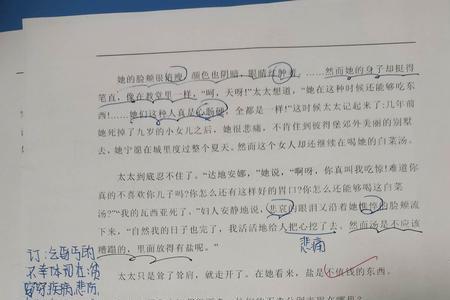 她的脸颊很消瘦，颜色也阴暗，眼睛红肿着。……然而她的身子却挺得
笔直，像在教堂里一样。“呵，天呀!”太太想道，“她在这种时候还能够吃东
西!……她们这种人真是心肠硬，全都是一样!”这时候太太记起来了:几年前
她死掉了九岁的小女儿之后，她很悲痛，不肯住到彼得堡郊外美丽的别墅
去，她宁愿在城里度过整个夏天。然而这个女人却还继续在喝她的白菜汤。
太太到底忍不住了。“达地安娜，”她说，“啊呀，你真叫我吃惊!难道你
真的不喜欢你儿子吗?你怎么还有这样好的胃口?你怎么还能够喝这白菜
汤?”“我的瓦西亚死了，”妇人安静地说，悲哀的眼泪又沿着她憔悴的脸颊流
下来，“自然我的日子也完了，我活活地给人把心挖了去。然而汤是不应该
糟蹋的，里面放得有盐呢。”
悲痛
太太只是耸了耸肩，就走开了。在她看来，盐是不值钱的东西。